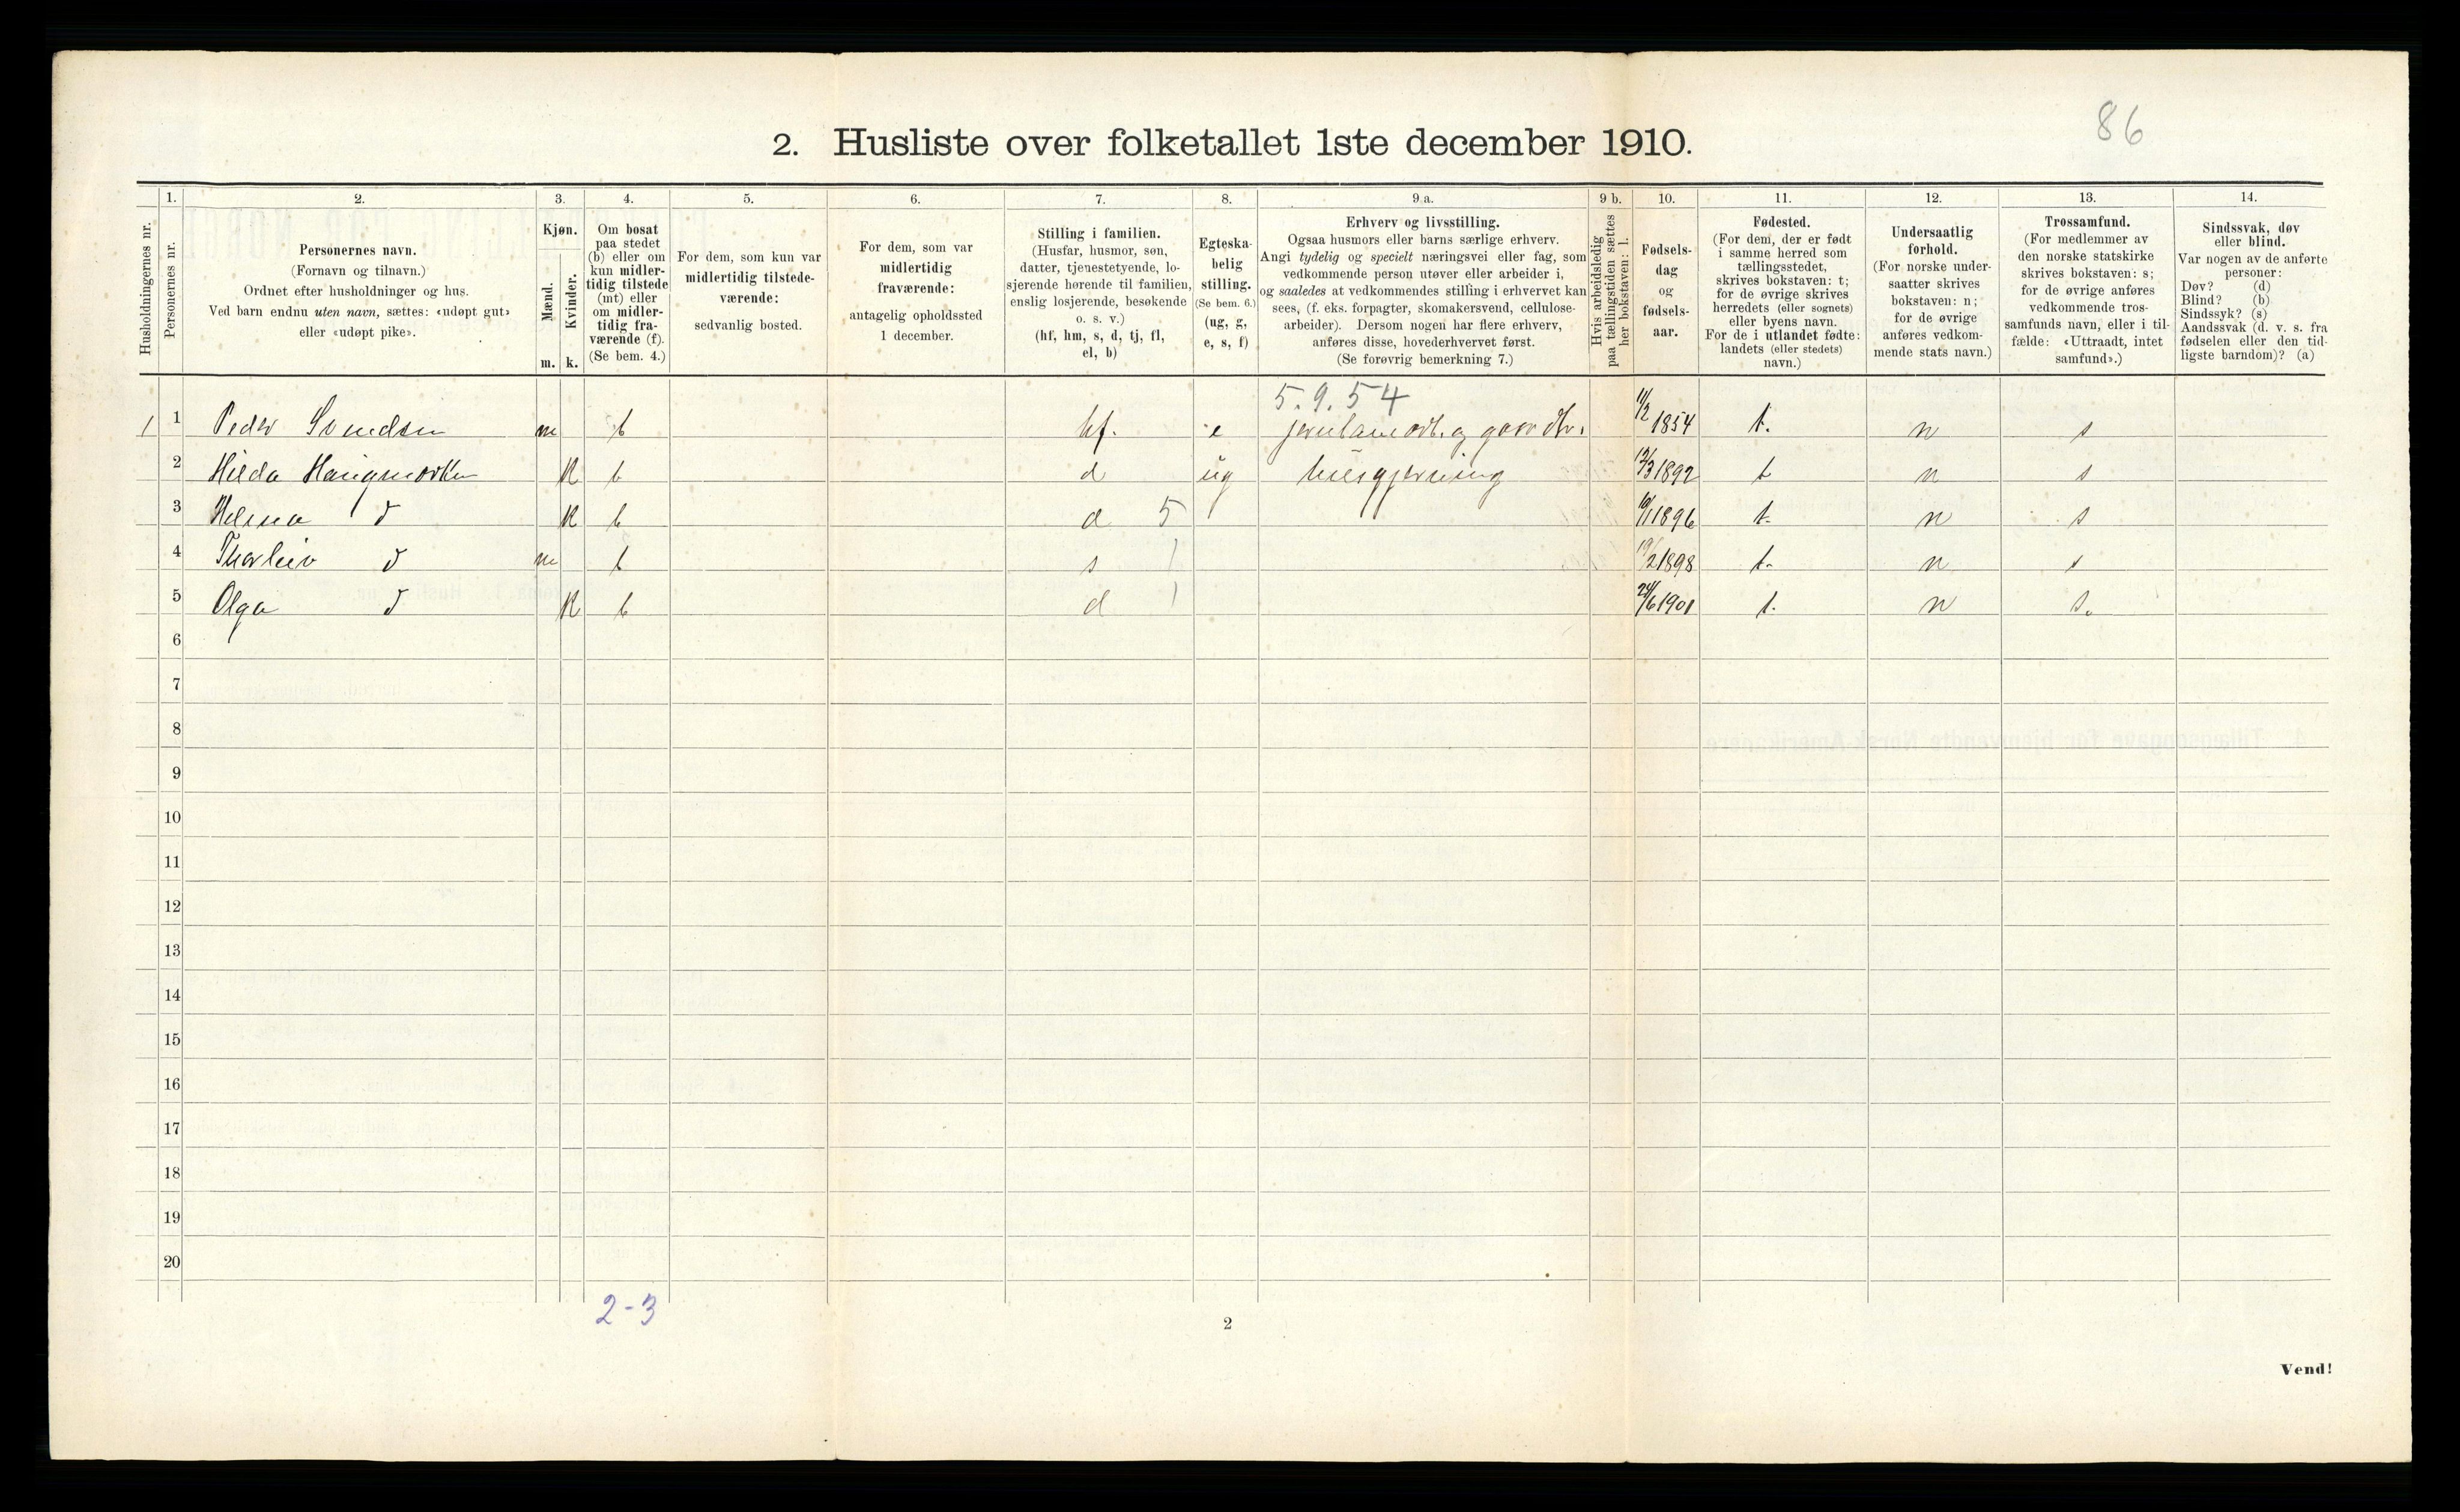 86
2. Husliste over folketallet 1ste december 1910.
Husholdningernes nr.
1.
Personernes nr.
2.
Personernes navn.
(Fornavn og tilnavn.)
Ordnet efter husholdninger og hus.
Ved barn endnu uten navn, sættes: «udøpt gut»
eller «udøpt pike».
3.
Kjøn.
Mænd.
Kvinder.
m. k.
4.
Om bosat
paa stedet
(b) eller om
kun midler-
tidig tilstede
(mt) eller
om midler-
tidig fra-
værende (f).
(Se bem. 4.)
5.
For dem, som kun var
midlertidig tilstede-
værende:
sedvanlig bosted.
6.
For dem, som var
midlertidig
fraværende:
antagelig opholdssted
1 december.
7.
Stilling i familien.
(Husfar, husmor, søn,
datter, tjenestetyende, lo-
sjerende hørende til familien,
enslig losjerende, besøkende
o. s. v.)
(hf, hm, s, d, tj, fl,
el, b)
8.
Egteska-
belig
stilling.
(Se bem. 6.)
(ug, g,
e, s, f)
9 a.
Erhverv og livsstilling.
Ogsaa husmors eller barns særlige erhverv.
Angi tydelig og specielt næringsvei eller fag, som
vedkommende person utøver eller arbeider i,
og saaledes at vedkommendes stilling i erhvervet kan
sees, (f. eks. forpagter, skomakersvend, cellulose-
arbeider). Dersom nogen har flere erhverv,
anføres disse, hovederhvervet først.
(Se forøvrig bemerkning 7.)
9 b.
Hvis arbeidsledig
paa tællingstiden sættes
her bokstaven: l.
10.
Fødsels-
dag
og
fødsels-
aar.
11.
Fødested.
(For dem, der er født
i samme herred som
tællingsstedet,
skrives bokstaven: t;
for de øvrige skrives
herredets (eller sognets)
eller byens navn.
For de i utlandet fødte:
landets (eller stedets)
navn.)
12.
Undersaatlig
forhold.
(For norske under-
saatter skrives
bokstaven: n;
for de øvrige
anføres vedkom-
mende stats navn.)
13.
Trossamfund.
(For medlemmer av
den norske statskirke
skrives bokstaven: s;
for de øvrige anføres
vedkommende tros-
samfunds navn, eller i til-
fælde: «Uttraadt, intet
samfund».)
14.
Sindssvak, døv
eller blind.
Var nogen av de anførte
personer:
Døv? (d)
Blind? (b)
Sindssyk? (s)
Aandssvak (d. v. s. fra
fødselen eller den tid-
ligste barndom)? (a)
5.9.54
1 1 Peder m b hf. e 11/2 1854 t. n s
2 Hilda k b d ug husgjerning 12/3 1892 t n s
3 k b d 5 10/11 1896 t. n s
4 Thorleiv d m b s 1 19/2 1898 t. n s
5 Olga d k b d 1 24/6 1901 t. n s.
6
7
8
9
10
11
12
13
14
15
16
17
18
19
20
2-3
2
Vend!